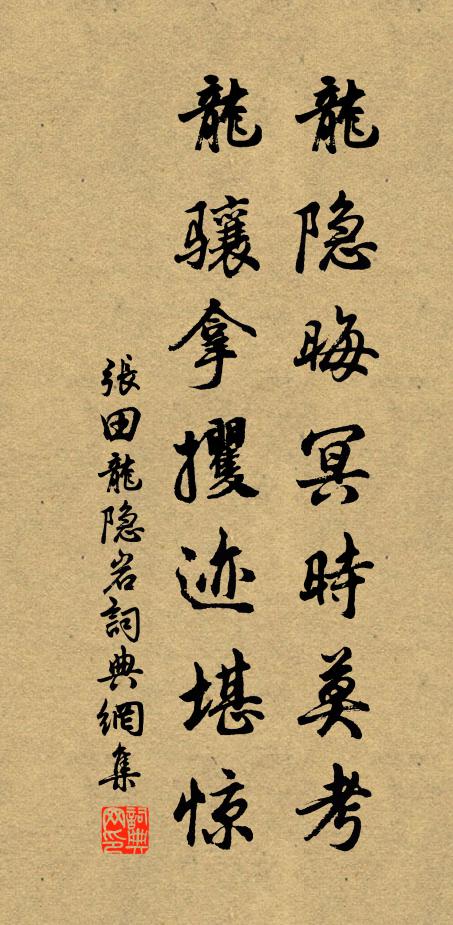 龍隐晦冥時莫考
龍骧拿攫迹堪惊
張田龍隐岩詞典網集
詞典網印